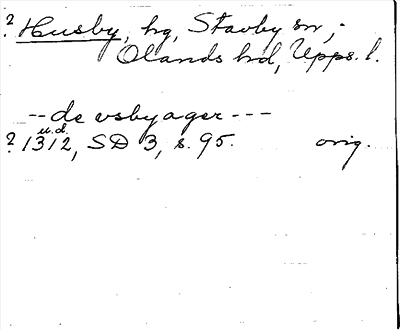 ? Husby, hg, Stavby sn,
Olands hd, Upps. l.
-- de vsbyager ---
u.d.
? 1312, SD 3, s. 95. orig.